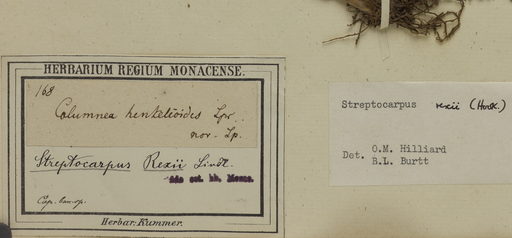 HERBARIUM REGIUM MONACENSE.
168
Columnea
nov. Sp.
Streptocarpus Rexii Lindl.
Cap. bon. sp.
Herbar. Kummer.
Streptocarpus rexii (Hook.)
Det. O.M. Hilliard
B.L. Burtt